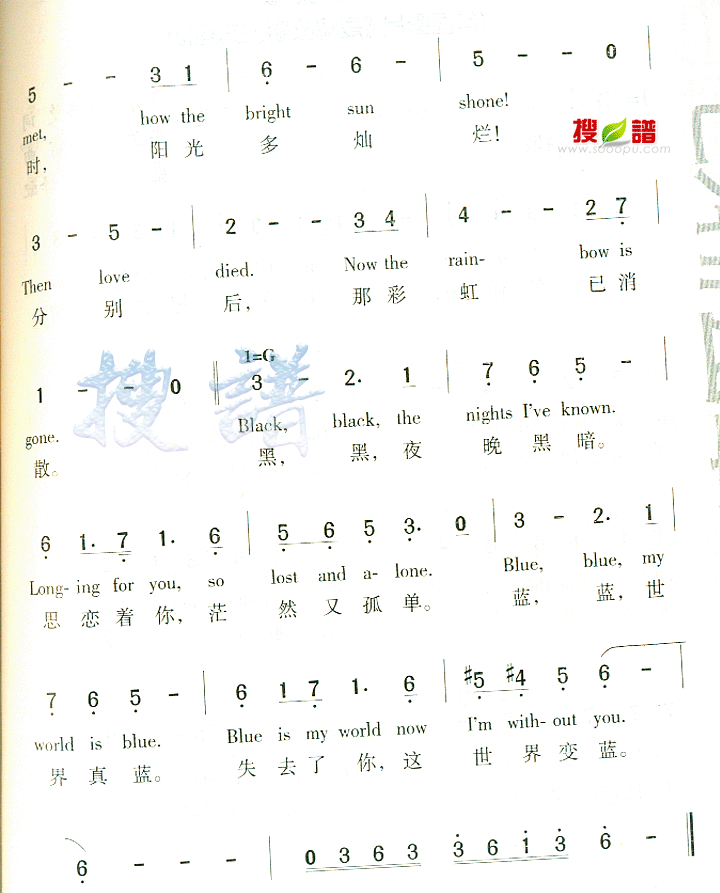 5 - - 3 1 | 6 - 6 - | 5 - - 0 |
met, how the bright sun shone!
时, 阳 光 多 灿 烂!
搜谱
www.sooopu.com
3 - 5 - | 2 - - 3 4 | 4 - - 2 7 |
Then love died. Now the rain- bow is
分 别 后, 那 彩 虹 已 消
1=G
1 - - 0 || 3 - 2· 1 | 7 6 5 - |
gone. Black, black, the nights I've known.
散。 黑, 黑, 夜 晚 黑 暗。
搜谱
6 1· 7 1· 6 | 5 6 5 3· 0 | 3 - 2· 1 |
Long- ing for you, so lost and a- lone. Blue, blue, my
思 恋 着 你, 茫 然 又 孤 单。 蓝, 蓝, 世
7 6 5 - | 6 1 7 1· 6 | #5 #4 5 6 - |
world is blue. Blue is my world now I'm with- out you.
界 真 蓝。 失 去 了 你, 这 世 界 变 蓝。
6 - - - | 0 3 6 3 3 6 1 3 6 - ||